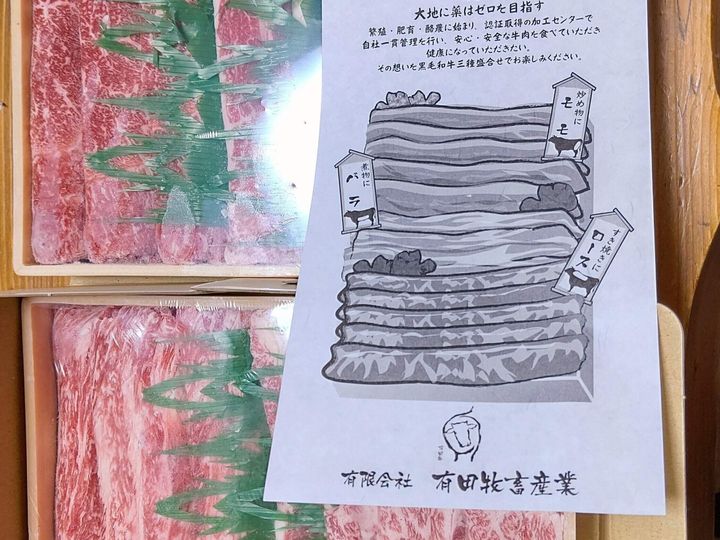 大地に薬はゼロを目指す
繁殖・肥育・酪農に始まり、認証取得の加工センターで
自社一貫管理を行い、安心・安全な牛肉を食べていただき
健康になっていただきたい。
その想いを黒毛和牛三種盛合せでお楽しみください。
炒め物に
モモ
煮物に
バラ
すき焼きに
ロース
有限会社 有田牧畜産業